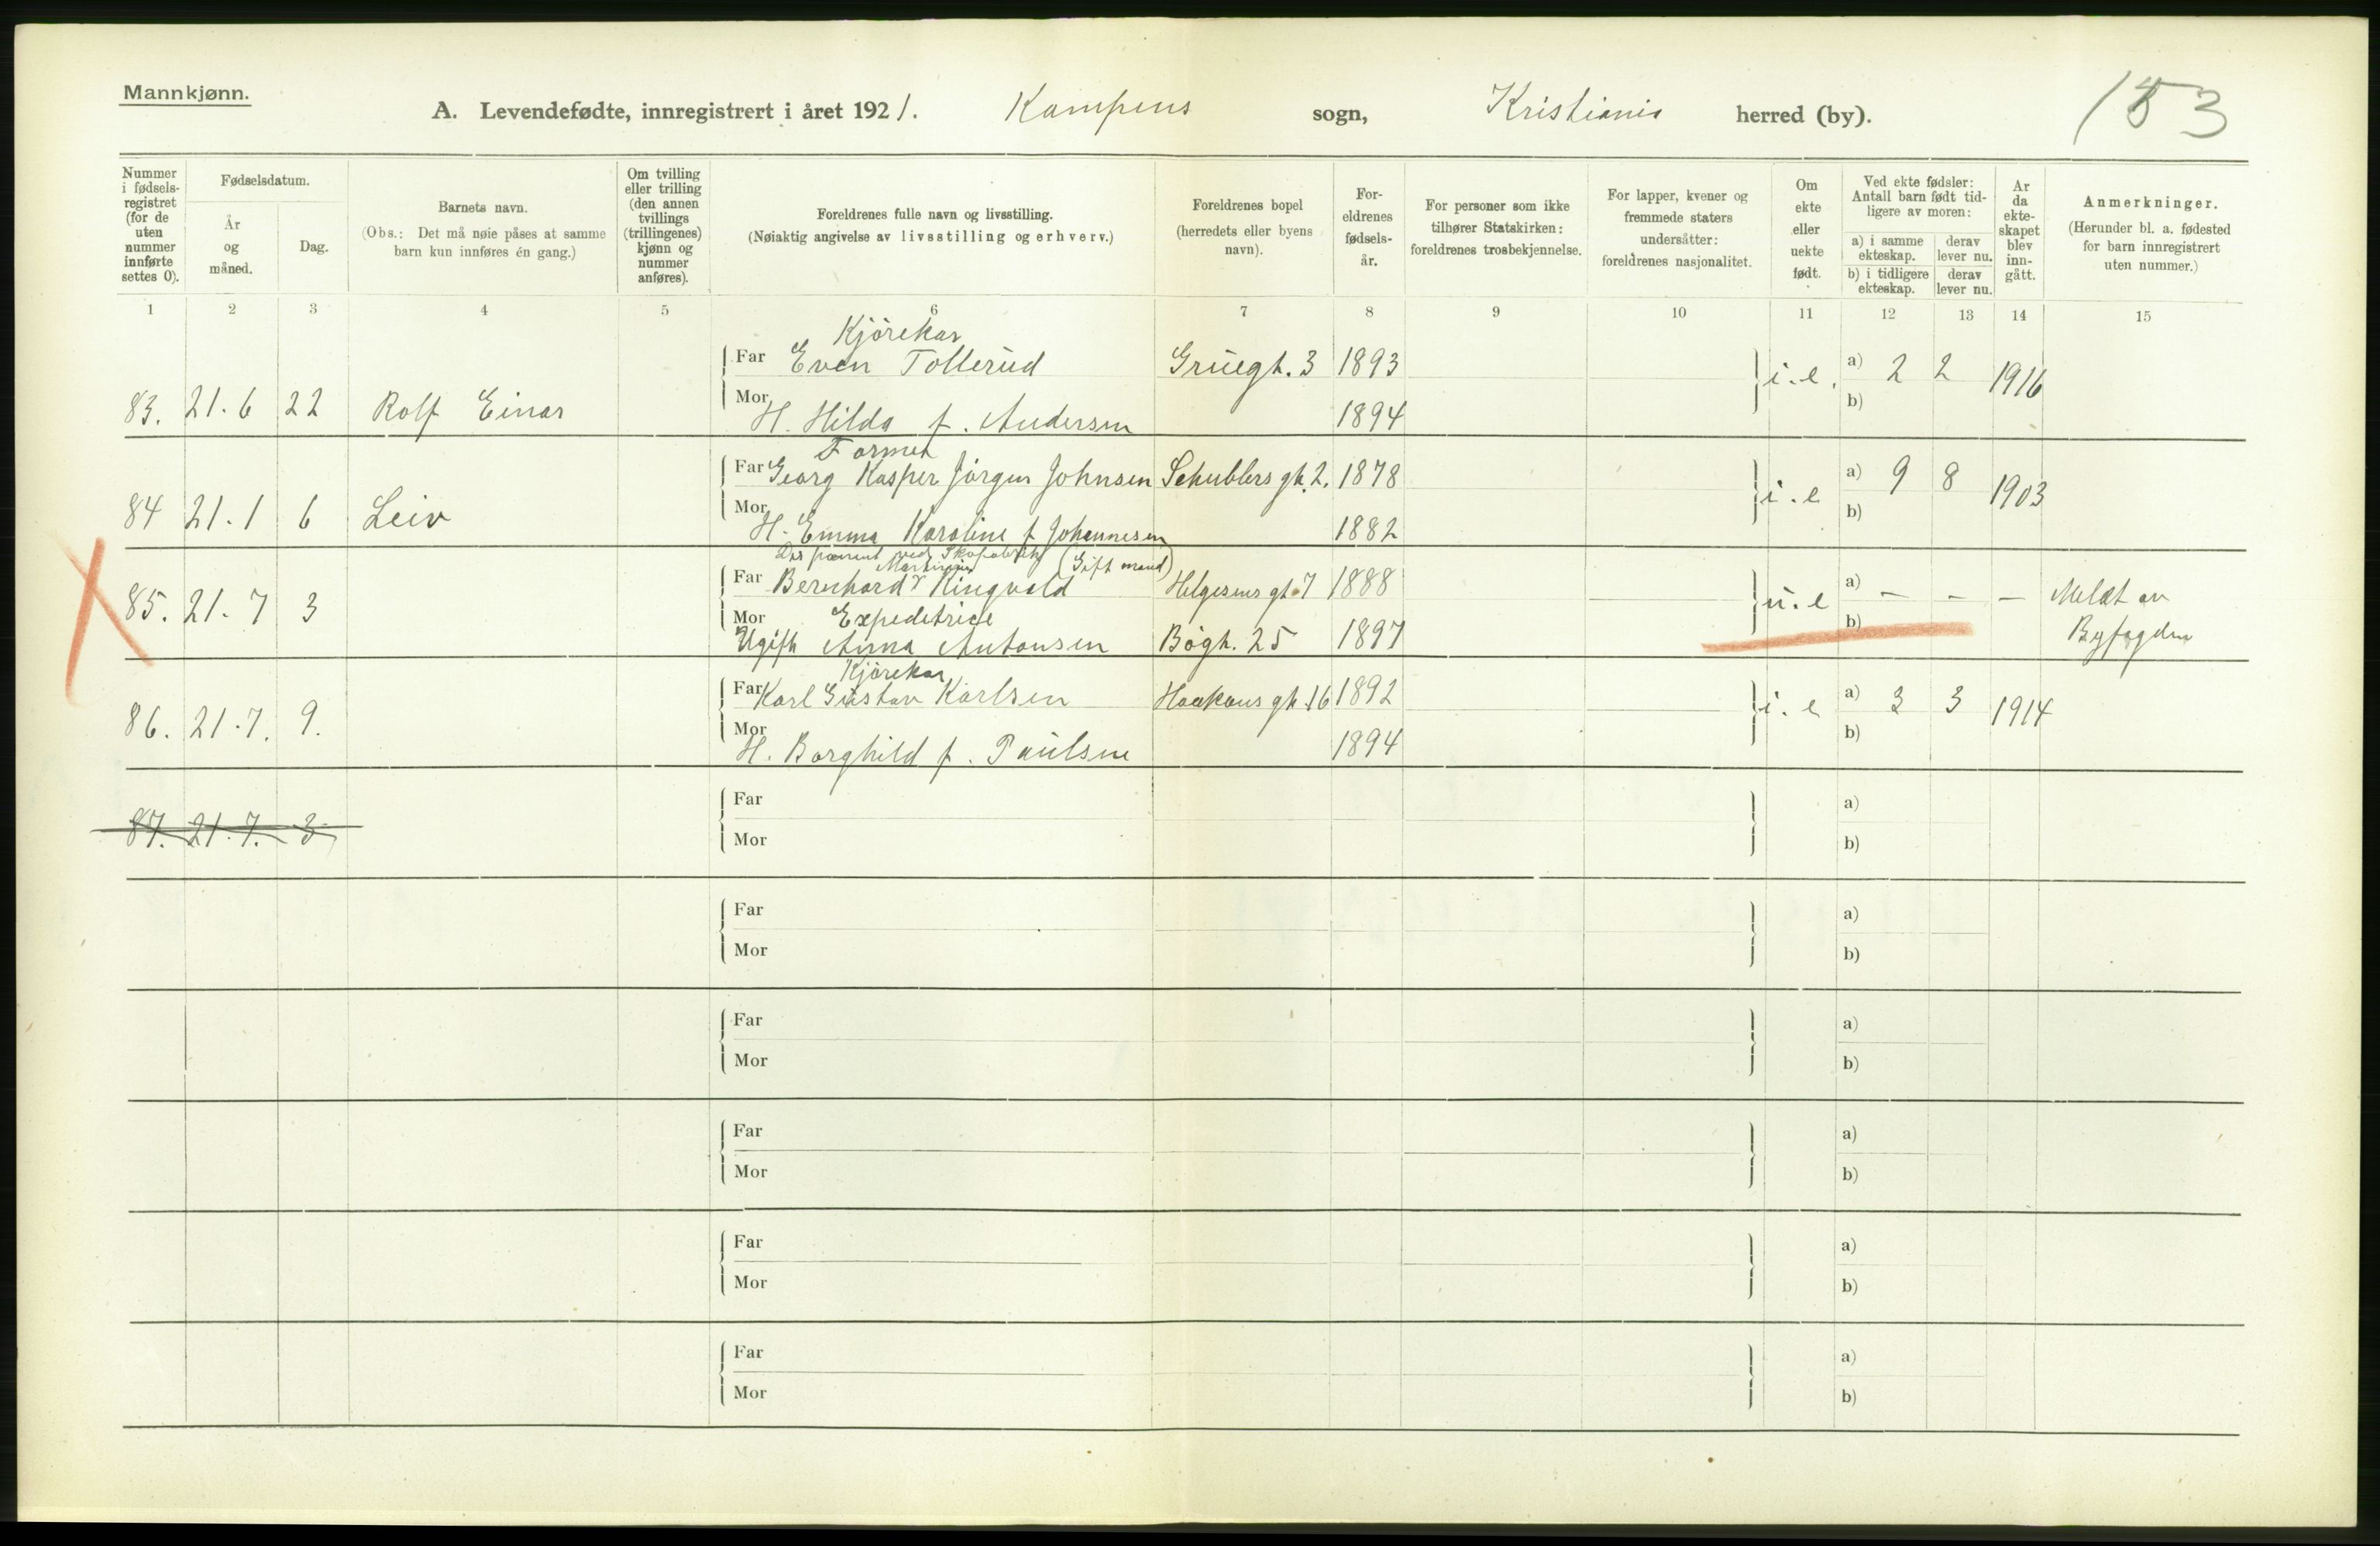 Mannkjønn.
A. Levendefødte, innregistrert i året 1921. Kampens sogn, Kristiania herred (by). 153
Nummer i fødsels-registret (for de uten nummer innførte settes 0).
Fødselsdatum.
År og måned.
Dag.
Barnets navn.
(Obs.: Det må nøie påses at samme barn kun innføres én gang.)
Om tvilling eller trilling (den annen tvillings (trillingenes) kjønn og nummer anføres).
Foreldrenes fulle navn og livsstilling.
(Nøiaktig angivelse av livsstilling og erhverv.)
Foreldrenes bopel (herredets eller byens navn).
For-eldrenes fødsels-år.
For personer som ikke tilhører Statskirken: foreldrenes trosbekjennelse.
For lapper, kvener og fremmede staters undersåtter: foreldrenes nasjonalitet.
Om ekte eller uekte født.
Ved ekte fødsler: Antall barn født tid-ligere av moren:
a) i samme ekteskap. derav lever nu.
b) i tidligere ekteskap. derav lever nu.
År da ekte-skapet blev inn-gått.
Anmerkninger.
(Herunder bl. a. fødested for barn innregistrert uten nummer.)
1 2 3 4 5 6 7 8 9 10 11 12 13 14 15
Kjörekar
Far Even Tollerud Gruegt. 3 1893 i.e. a) 2 2 1916
83. 21.6 22 Rolf Einar Mor H. Hilda f. Andersen 1894 b)
Former
Far Georg Kasper Jörgen Johnsen Schüblers gt. 2. 1878 i.e a) 9 8 1903
84 21.1 6 Leiv Mor H. Emma Karoline f Johannesen 1882 b)
ved Skofabrik (Gift mand)
Martinius
Far Bernhard Ringvold Helgesens gt. 7 1888 u.e a) — — — Meldt av
85. 21.7 3 Mor Expeditrice b)
Ugift Anna Antonsen Bögt. 25 1897 Byfogden
Kjörekar
Far Karl Gustav Karlsen Haakons gt. 16 1892 i.e a) 3 3 1914
86. 21.7. 9. Mor H. Borghild f. Paulsen 1894 b)
Far a)
87. 21.7. 3 Mor b)
Far a)
Mor b)
Far a)
Mor b)
Far a)
Mor b)
Far a)
Mor b)
Far a)
Mor b)